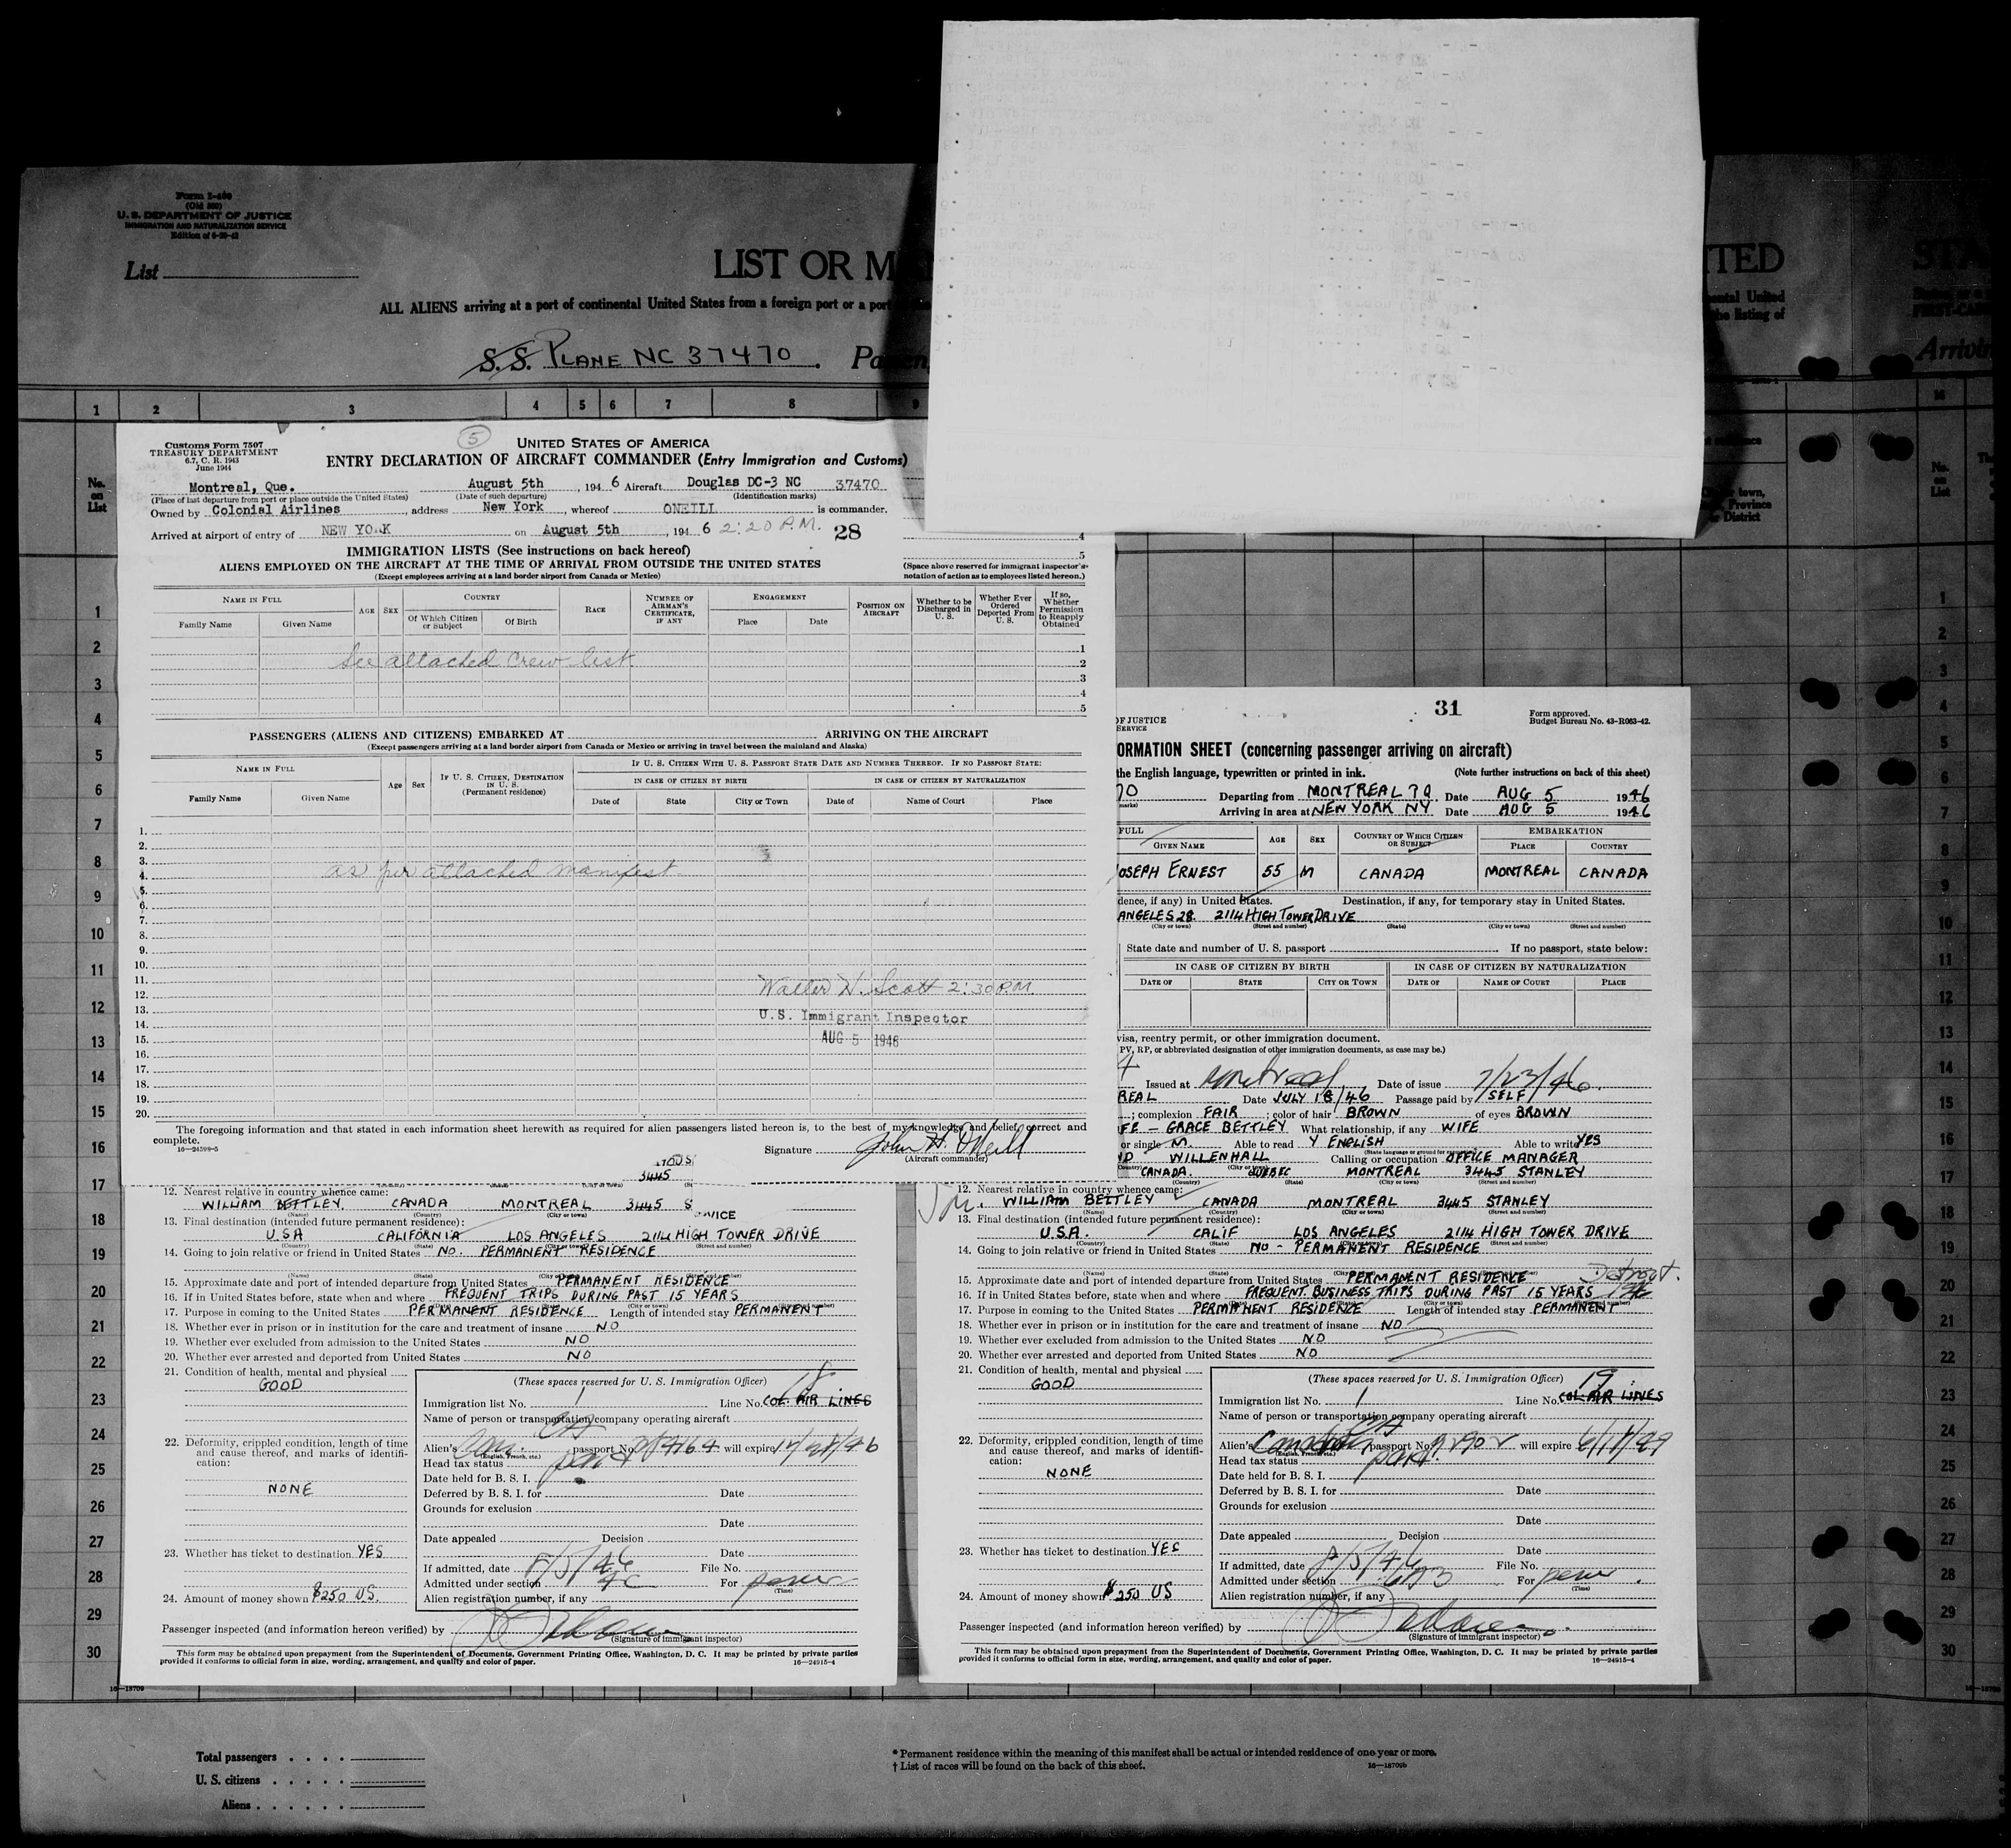 Form I-480
(Old 500)
U. S. DEPARTMENT OF JUSTICE
IMMIGRATION AND NATURALIZATION SERVICE
List
LIST OR M
ITED
STA
ALL ALIENS arriving at a port of continental United States from a foreign port or a port
ental United
the listing of
FIRST-CA
S.S. PLANE NC 37470.
Arrivi
1 2 3 4 5 6 7 8 9
No. on List
5
Customs Form 7507
TREASURY DEPARTMENT
6.7, C. R. 1943
June 1944
UNITED STATES OF AMERICA
ENTRY DECLARATION OF AIRCRAFT COMMANDER (Entry Immigration and Customs)
Montreal, Que. August 5th, 194 6 Aircraft Douglas DC-3 NC 37470
(Place of last departure from port or place outside the United States) (Date of such departure) (Identification marks)
Owned by Colonial Airlines, address New York, whereof ONEILL is commander.
Arrived at airport of entry of NEW YORK on August 5th, 194 6 2:20 P.M. 28
IMMIGRATION LISTS (See instructions on back hereof)
ALIENS EMPLOYED ON THE AIRCRAFT AT THE TIME OF ARRIVAL FROM OUTSIDE THE UNITED STATES
(Except employees arriving at a land border airport from Canada or Mexico)
4
5
(Space above reserved for immigrant inspector's notation of action as to employees listed hereon.)
NAME IN FULL
Family Name Given Name
AGE SEX
COUNTRY
Of Which Citizen or Subject Of Birth
RACE
NUMBER OF AIRMAN'S CERTIFICATE, IF ANY
ENGAGEMENT
Place Date
POSITION ON AIRCRAFT
Whether to be Discharged in U. S.
Whether Ever Ordered Deported From U. S.
If so, Whether Permission to Reapply Obtained
See attached crew list
1
2
3
4
5
PASSENGERS (ALIENS AND CITIZENS) EMBARKED AT ARRIVING ON THE AIRCRAFT
(Except passengers arriving at a land border airport from Canada or Mexico or arriving in travel between the mainland and Alaska)
NAME IN FULL
Family Name Given Name
Age Sex
IF U. S. CITIZEN, DESTINATION IN U. S. (Permanent residence)
IF U. S. CITIZEN WITH U. S. PASSPORT STATE DATE AND NUMBER THEREOF. IF NO PASSPORT STATE:
IN CASE OF CITIZEN BY BIRTH IN CASE OF CITIZEN BY NATURALIZATION
Date of State City or Town Date of Name of Court Place
1.
2.
3.
4. as per attached manifest
5.
6.
7.
8.
9.
10.
11. Walter N. Scott 2:30 P.M.
12.
13. U.S. Immigrant Inspector
14.
15. AUG 5 1946
16.
17.
18.
19.
20.
The foregoing information and that stated in each information sheet herewith as required for alien passengers listed hereon is, to the best of my knowledge and belief, correct and complete.
16—24598-5
Signature John H. O'Neill
(Aircraft commander)
3445
12. Nearest relative in country whence came:
WILLIAM BETTLEY. CANADA MONTREAL 3445 S
(Name) (Country) (City or town)
VICE
13. Final destination (intended future permanent residence):
USA CALIFORNIA LOS ANGELES 2114 HIGH TOWER DRIVE
(Country) (State) (City or town) (Street and number)
14. Going to join relative or friend in United States NO. PERMANENT RESIDENCE
(Name) (State) (City or town) (Street and number)
15. Approximate date and port of intended departure from United States PERMANENT RESIDENCE
16. If in United States before, state when and where FREQUENT TRIPS DURING PAST 15 YEARS
17. Purpose in coming to the United States PERMANENT RESIDENCE Length of intended stay PERMANENT
18. Whether ever in prison or in institution for the care and treatment of insane NO
19. Whether ever excluded from admission to the United States NO
20. Whether ever arrested and deported from United States NO
21. Condition of health, mental and physical
GOOD
22. Deformity, crippled condition, length of time and cause thereof, and marks of identification:
NONE
23. Whether has ticket to destination YES
24. Amount of money shown $250 US.
(These spaces reserved for U. S. Immigration Officer)
Immigration list No. 1 Line No. 18 COL. AIR LINES
Name of person or transportation company operating aircraft
Alien's passport No. will expire
(English, French, etc.)
Head tax status
Date held for B. S. I.
Deferred by B. S. I. for Date
Grounds for exclusion
Date
Date appealed Decision
Date
If admitted, date 8/5/46 File No.
Admitted under section 4C For perm
(Time)
Alien registration number, if any
Passenger inspected (and information hereon verified) by
(Signature of immigrant inspector)
This form may be obtained upon prepayment from the Superintendent of Documents, Government Printing Office, Washington, D. C. It may be printed by private parties provided it conforms to official form in size, wording, arrangement, and quality and color of paper.
16—24915-4
31
OF JUSTICE
SERVICE
Form approved.
Budget Bureau No. 43-R063-42.
ORMATION SHEET (concerning passenger arriving on aircraft)
the English language, typewritten or printed in ink. (Note further instructions on back of this sheet)
70 Departing from MONTREAL P.Q. Date AUG 5 1946
marks)
Arriving in area at NEW YORK NY Date AUG 5 1946
FULL
GIVEN NAME
AGE SEX COUNTRY OF WHICH CITIZEN OR SUBJECT
EMBARKATION
PLACE COUNTRY
OSEPH ERNEST 55 M CANADA MONTREAL CANADA
dence, if any) in United States. Destination, if any, for temporary stay in United States.
ANGELES 28. 2114 HIGH TOWER DRIVE
(City or town) (Street and number) (State) (City or town) (Street and number)
State date and number of U. S. passport If no passport, state below:
IN CASE OF CITIZEN BY BIRTH IN CASE OF CITIZEN BY NATURALIZATION
DATE OF STATE CITY OR TOWN DATE OF NAME OF COURT PLACE
visa, reentry permit, or other immigration document.
PV, RP, or abbreviated designation of other immigration documents, as case may be.)
Issued at Montreal Date of issue 7/23/46.
REAL Date JULY 18/46 Passage paid by SELF
; complexion FAIR ; color of hair BROWN of eyes BROWN
FE - GRACE BETTLEY What relationship, if any WIFE
or single M. Able to read Y ENGLISH Able to write YES
ND WILLENHALL Calling or occupation OFFICE MANAGER
CANADA. QUEBEC MONTREAL 3445 STANLEY
(Country) (State) (City or town) (Street and number)
12. Nearest relative in country whence came:
WILLIAM BETTLEY CANADA MONTREAL 3445 STANLEY
(Name) (Country) (City or town) (Street and number)
13. Final destination (intended future permanent residence):
U.S.A. CALIF LOS ANGELES 2114 HIGH TOWER DRIVE
(Country) (State) (City or town) (Street and number)
14. Going to join relative or friend in United States NO - PERMANENT RESIDENCE
(Name) (State) (City or town) (Street and number)
15. Approximate date and port of intended departure from United States PERMANENT RESIDENCE Detroit.
16. If in United States before, state when and where FREQUENT BUSINESS TRIPS DURING PAST 15 YEARS
17. Purpose in coming to the United States PERMANENT RESIDENCE Length of intended stay PERMANENT
18. Whether ever in prison or in institution for the care and treatment of insane NO
19. Whether ever excluded from admission to the United States NO
20. Whether ever arrested and deported from United States NO
21. Condition of health, mental and physical
GOOD
22. Deformity, crippled condition, length of time and cause thereof, and marks of identification:
NONE
23. Whether has ticket to destination YES
24. Amount of money shown $250 US
(These spaces reserved for U. S. Immigration Officer)
Immigration list No. 1 Line No. 19 COL. AIR LINES
Name of person or transportation company operating aircraft
Alien's Canadian passport No. will expire
(English, French, etc.)
Head tax status
Date held for B. S. I.
Deferred by B. S. I. for Date
Grounds for exclusion
Date
Date appealed Decision
Date
If admitted, date 8/5/46 File No.
Admitted under section For perm.
(Time)
Alien registration number, if any
Passenger inspected (and information hereon verified) by
(Signature of immigrant inspector)
This form may be obtained upon prepayment from the Superintendent of Documents, Government Printing Office, Washington, D. C. It may be printed by private parties provided it conforms to official form in size, wording, arrangement, and quality and color of paper.
16—24915-4
Total passengers
U. S. citizens
Aliens
* Permanent residence within the meaning of this manifest shall be actual or intended residence of one year or more.
† List of races will be found on the back of this sheet.
16—18709b